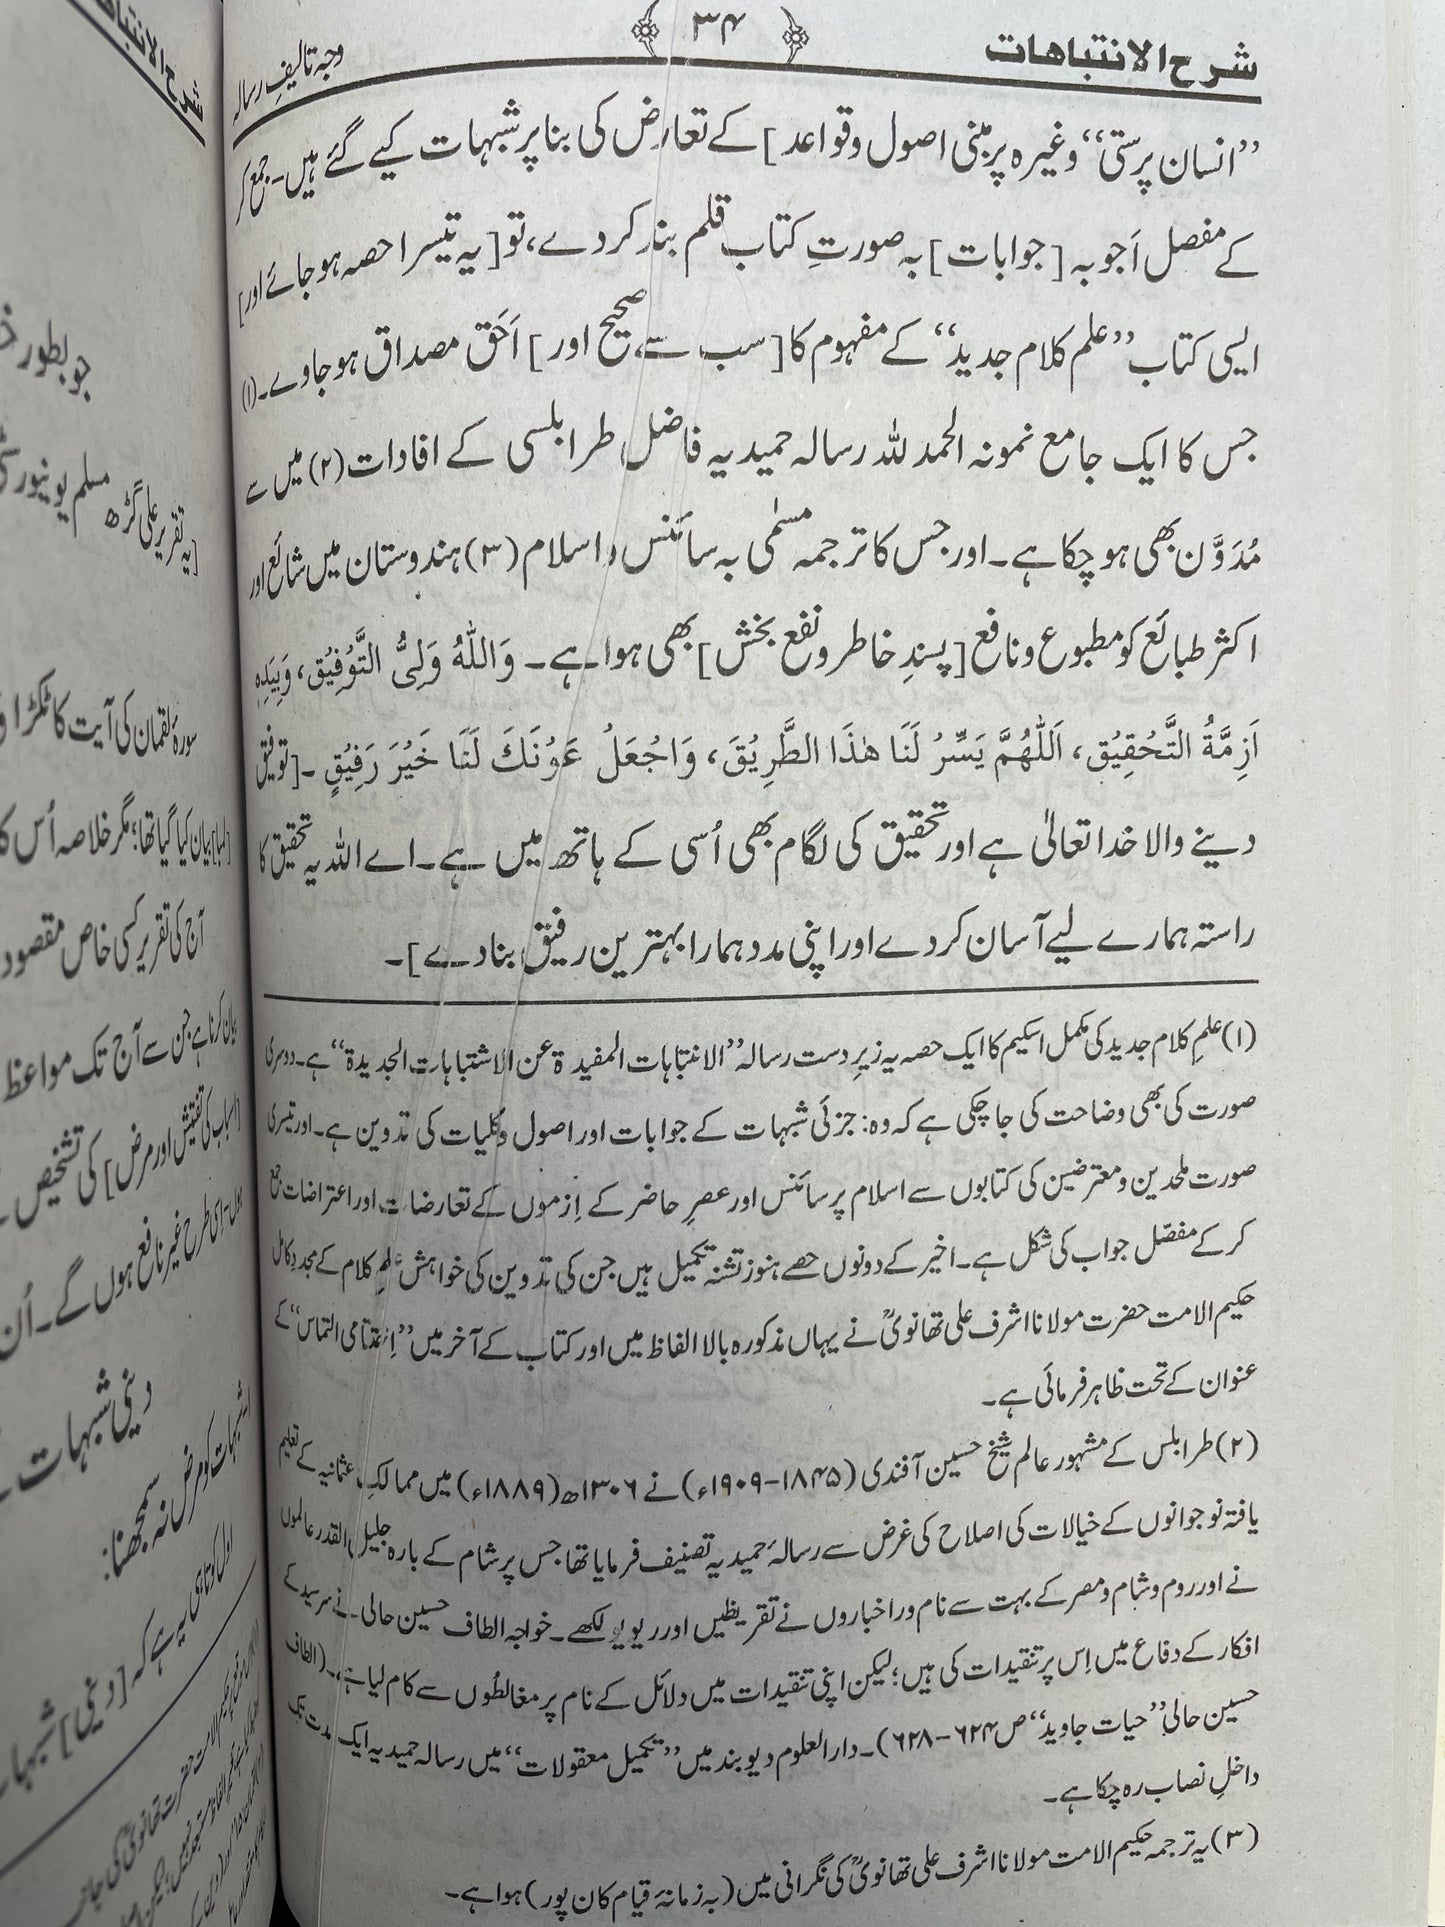 شرح الانتباہات
۳۴
وجہ تالیفِ رسالہ
”انسان پرستی“ وغیرہ پر مبنی اصول وقواعد] کے تعارض کی بنا پر شبہات کیے گئے ہیں۔ جمع کر
کے مفصل اَجوبہ [جوابات] بہ صورتِ کتاب قلم بند کر دے، تو [یہ تیسرا حصہ ہو جائے اور]
ایسی کتاب ”علم کلام جدید“ کے مفہوم کا [سب سے صحیح اور] اَحَق مصداق ہو جاوے۔(۱)
جس کا ایک جامع نمونہ الحمد للہ رسالہ حمیدیہ فاضل طرابلسی کے افادات (۲) میں سے
مُدَوَّن بھی ہو چکا ہے۔ اور جس کا ترجمہ مسمٰی بہ سائنس و اسلام (۳) ہندوستان میں شائع اور
اکثر طبائع کو مطبوع و نافع [پسندِ خاطر و نفع بخش] بھی ہوا ہے۔ وَاللّٰهُ وَلِیُّ التَّوْفِیْقِ، وَبِیَدِہٖ
اَزِمَّةُ التَّحْقِیْقِ، اَللّٰهُمَّ یَسِّرْ لَنَا هٰذَا الطَّرِیْقَ، وَاجْعَلْ عَوْنَكَ لَنَا خَیْرَ رَفِیْقٍ۔ [توفیق
دینے والا خدا تعالیٰ ہے اور تحقیق کی لگام بھی اُسی کے ہاتھ میں ہے۔ اے اللہ یہ تحقیق کا
راستہ ہمارے لیے آسان کر دے اور اپنی مدد ہمارا بہترین رفیق بنا دے]۔
(۱) علمِ کلام جدید کی مکمل اسکیم کا ایک حصہ یہ زیرِ دست رسالہ ”الانتباہات المفیدۃ عن الاشتباہات الجدیدۃ“ ہے۔ دوسری
صورت کی بھی وضاحت کی جا چکی ہے کہ وہ: جزئی شبہات کے جوابات اور اصول و کلیات کی تدوین ہے۔ اور تیسری
صورت ملحدین و معترضین کی کتابوں سے اسلام پر سائنس اور عصرِ حاضر کے اِزموں کے تعارضات اور اعتراضات جمع
کر کے مفصّل جواب کی شکل ہے۔ اخیر کے دونوں حصے ہنوز تشنۂ تکمیل ہیں جن کی تدوین کی خواہش علمِ کلام کے مجددِ کامل
حکیم الامت حضرت مولانا اشرف علی تھانویؒ نے یہاں مذکورہ بالا الفاظ میں اور کتاب کے آخر میں ”اِختتامی التماس“ کے
عنوان کے تحت ظاہر فرمائی ہے۔
(۲) طرابلس کے مشہور عالم شیخ حسین آفندی (۱۸۴۵-۱۹۰۹ء) نے ۱۳۰۶ھ (۱۸۸۹ء) میں ممالکِ عثمانیہ کے تعلیم
یافتہ نوجوانوں کے خیالات کی اصلاح کی غرض سے رسالۂ حمیدیہ تصنیف فرمایا تھا جس پر شام کے بارہ جلیل القدر عالموں
نے اور روم و شام و مصر کے بہت سے نام ور اخباروں نے تقریظیں اور ریویو لکھے۔ خواجہ الطاف حسین حالی نے سرسید کے
افکار کے دفاع میں اِس پر تنقیدات کی ہیں؛ لیکن اپنی تنقیدات میں دلائل کے نام پر مغالطوں سے کام لیا ہے۔ (الطاف
حسین حالی ”حیات جاوید“ ص ۶۲۴-۶۲۸)۔ دارالعلوم دیوبند میں ”تکمیل معقولات“ میں رسالہ حمیدیہ ایک مدت تک
داخلِ نصاب رہ چکا ہے۔
(۳) یہ ترجمہ حکیم الامت مولانا اشرف علی تھانویؒ کی نگرانی میں (بہ زمانۂ قیام کان پور) ہوا ہے۔
شرح الانتباہات
جو بطور
مسلم یونیورسٹی
[یہ تقریر علی گڑھ
سورۂ لقمان کی آیت کا ٹکڑا
بیان کیا گیا تھا؛ مگر خلاصہ اُس کا
آج کی تقریر کسی خاص مقصود
بیان کرنا ہے جن سے آج تک مواعظ
[اسباب کی تفتیش اور مرض] کی تشخیص
اسی طرح غیر نافع ہوں گے۔ اُن
دینی شبہات
شبہات کو مرض نہ سمجھنا:
اول کوتاہی یہ ہے کہ [دینی] شبہات